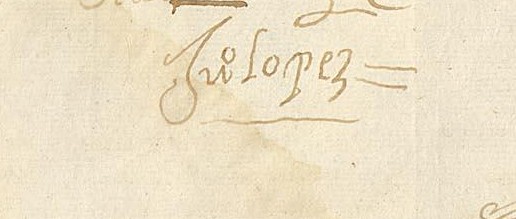 Juº lopez